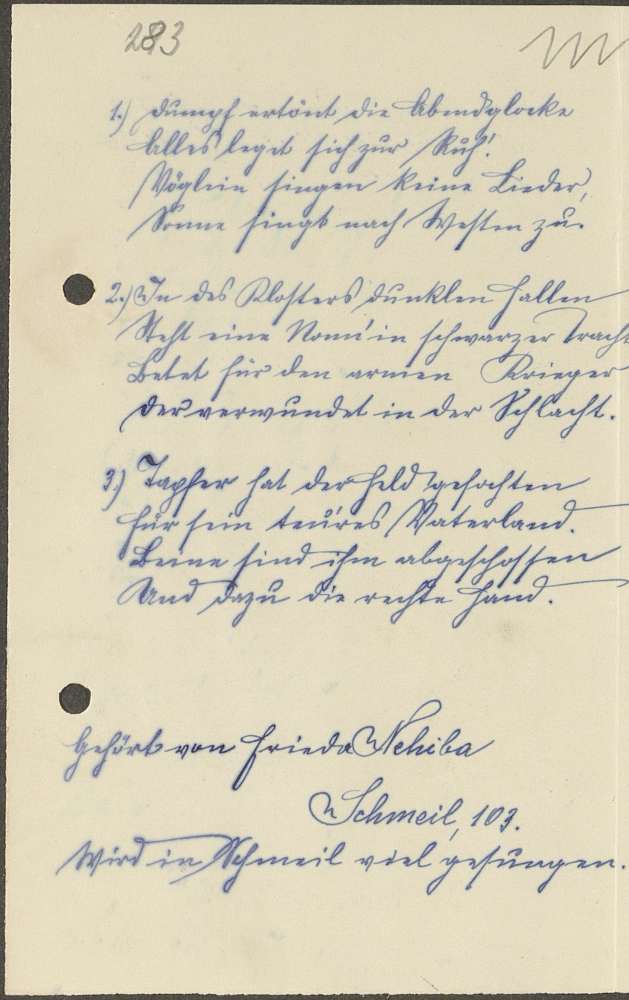 283
1.) Dumpf ertönt die Abendglocke
Alles leget sich zur Ruh!
Vöglein singen keine Lieder,
Sonne singt nach Westen zu.
2.) In des Klosters dunklen Hallen
Steht eine Nonn' in schwarzer Tracht
Betet für den armen Krieger
Der verwundet in der Schlacht.
3.) Tapfer hat der Held gefochten
Für sein teures Vaterland.
Beine sind ihm abgeschossen
Und dazu die rechte Hand.
Gehört von Frieda Nehiba
Schmeil, 103.
Wird in Schmeil viel gesungen.